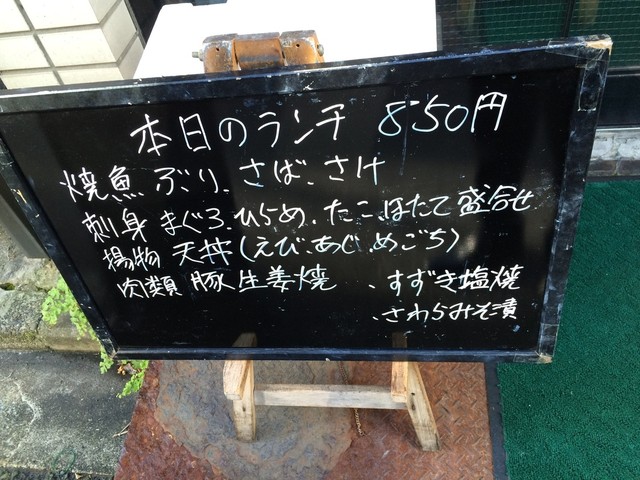 本日のランチ 850円
焼魚 ぶり、さば、さけ
刺身 まぐろ、ひらめ、たこ、ほたて盛合せ
揚物 天丼(えび、あじ、めごち)
肉類 豚生姜焼 、すずき塩焼
、さわらみそ漬